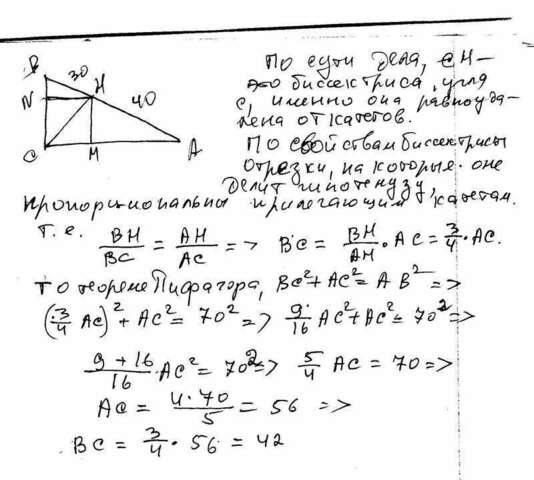 B 30 H
N 40
C M A
По сути дела, CH –
это биссектриса угла
C, именно она равноуда-
лена от катетов.
По свойствам биссектрисы
отрезки, на которые она
делит гипотенузу,
пропорциональны прилегающим катетам.
т.е. BH/BC = AH/AC => BC = BH/AH · AC = 3/4 · AC.
По теореме Пифагора, BC² + AC² = AB² =>
(3/4 AC)² + AC² = 70² => 9/16 AC² + AC² = 70² =>
9 + 16/16 AC² = 70² => 5/4 AC = 70 =>
AC = 4·70/5 = 56 =>
BC = 3/4 · 56 = 42